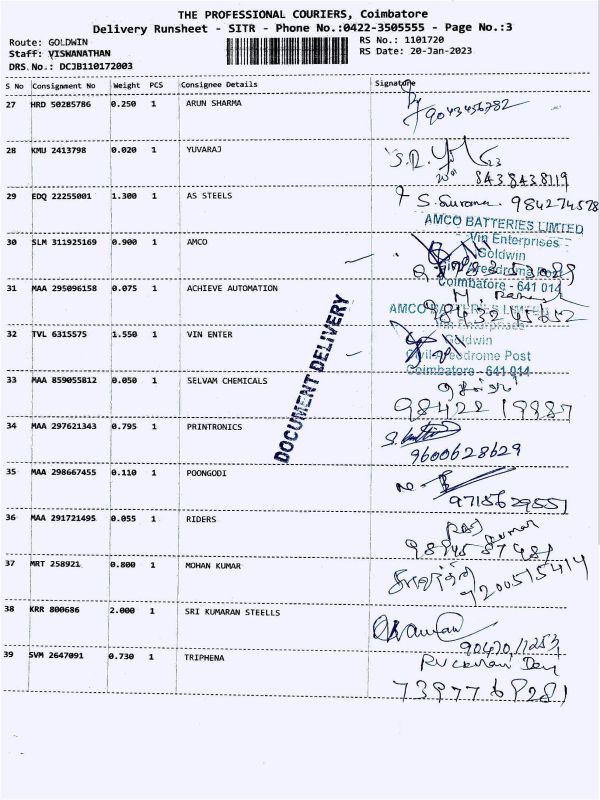 THE PROFESSIONAL COURIERS, Coimbatore
Delivery Runsheet - SITR - Phone No.:0422-3505555 - Page No.:3
Route: GOLDWIN
RS No.: 1101720
Staff: VISWANATHAN
RS Date: 20-Jan-2023
DRS. No.: DCJB110172003
S No Consignment No Weight PCS Consignee Details Signature
27 HRD 50285786 0.250 1 ARUN SHARMA
9043456782
28 KMU 2413798 0.020 1 YUVARAJ
8438438119
29 EDQ 22255001 1.300 1 AS STEELS
AMCO BATTERIES LIMITED
30 SLM 311925169 0.900 1 AMCO
Vin Enterprises
Goldwin
Civil Areodrome Post
Coimbatore - 641 014
31 MAA 295096158 0.075 1 ACHIEVE AUTOMATION
AMCO BATTERIES LIMITED
32 TVL 6315575 1.550 1 VIN ENTER
Vin Enterprises
Goldwin
Civil Areodrome Post
Coimbatore - 641 014
DOCUMENT DELIVERY
33 MAA 859055812 0.050 1 SELVAM CHEMICALS
98422 19987
34 MAA 297621343 0.795 1 PRINTRONICS
9600628629
35 MAA 298667455 0.110 1 POONGODI
9715629551
36 MAA 291721495 0.055 1 RIDERS
37 MRT 258921 0.800 1 MOHAN KUMAR
7200515414
38 KRR 800686 2.000 1 SRI KUMARAN STEELLS
39 SVM 2647091 0.730 1 TRIPHENA
7397768281